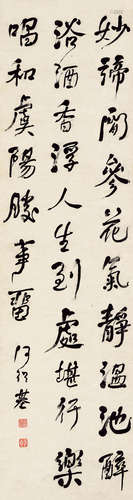 妙諦開參花氣靜溫池醉
浴酒香浮人生到處堪行樂
唱和虞陽勝事留
何紹基